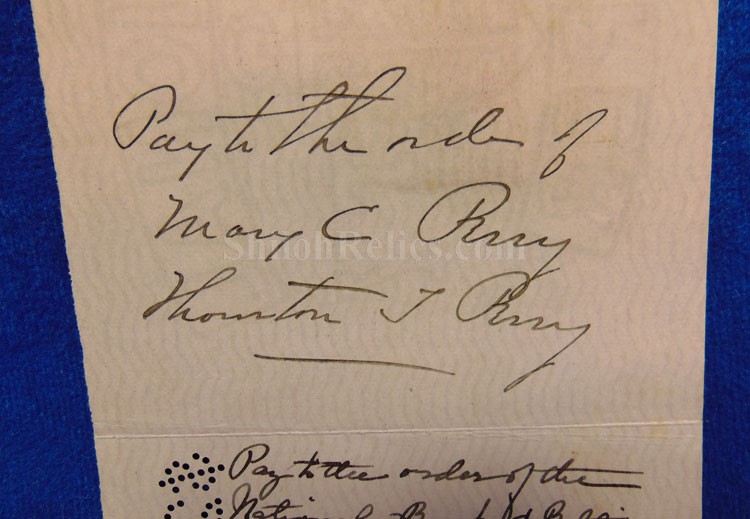 Pay to the order of
Mary C Perry
ShilohRelics.com
Thornton T Perry
Pay to the order of the
National Bank of